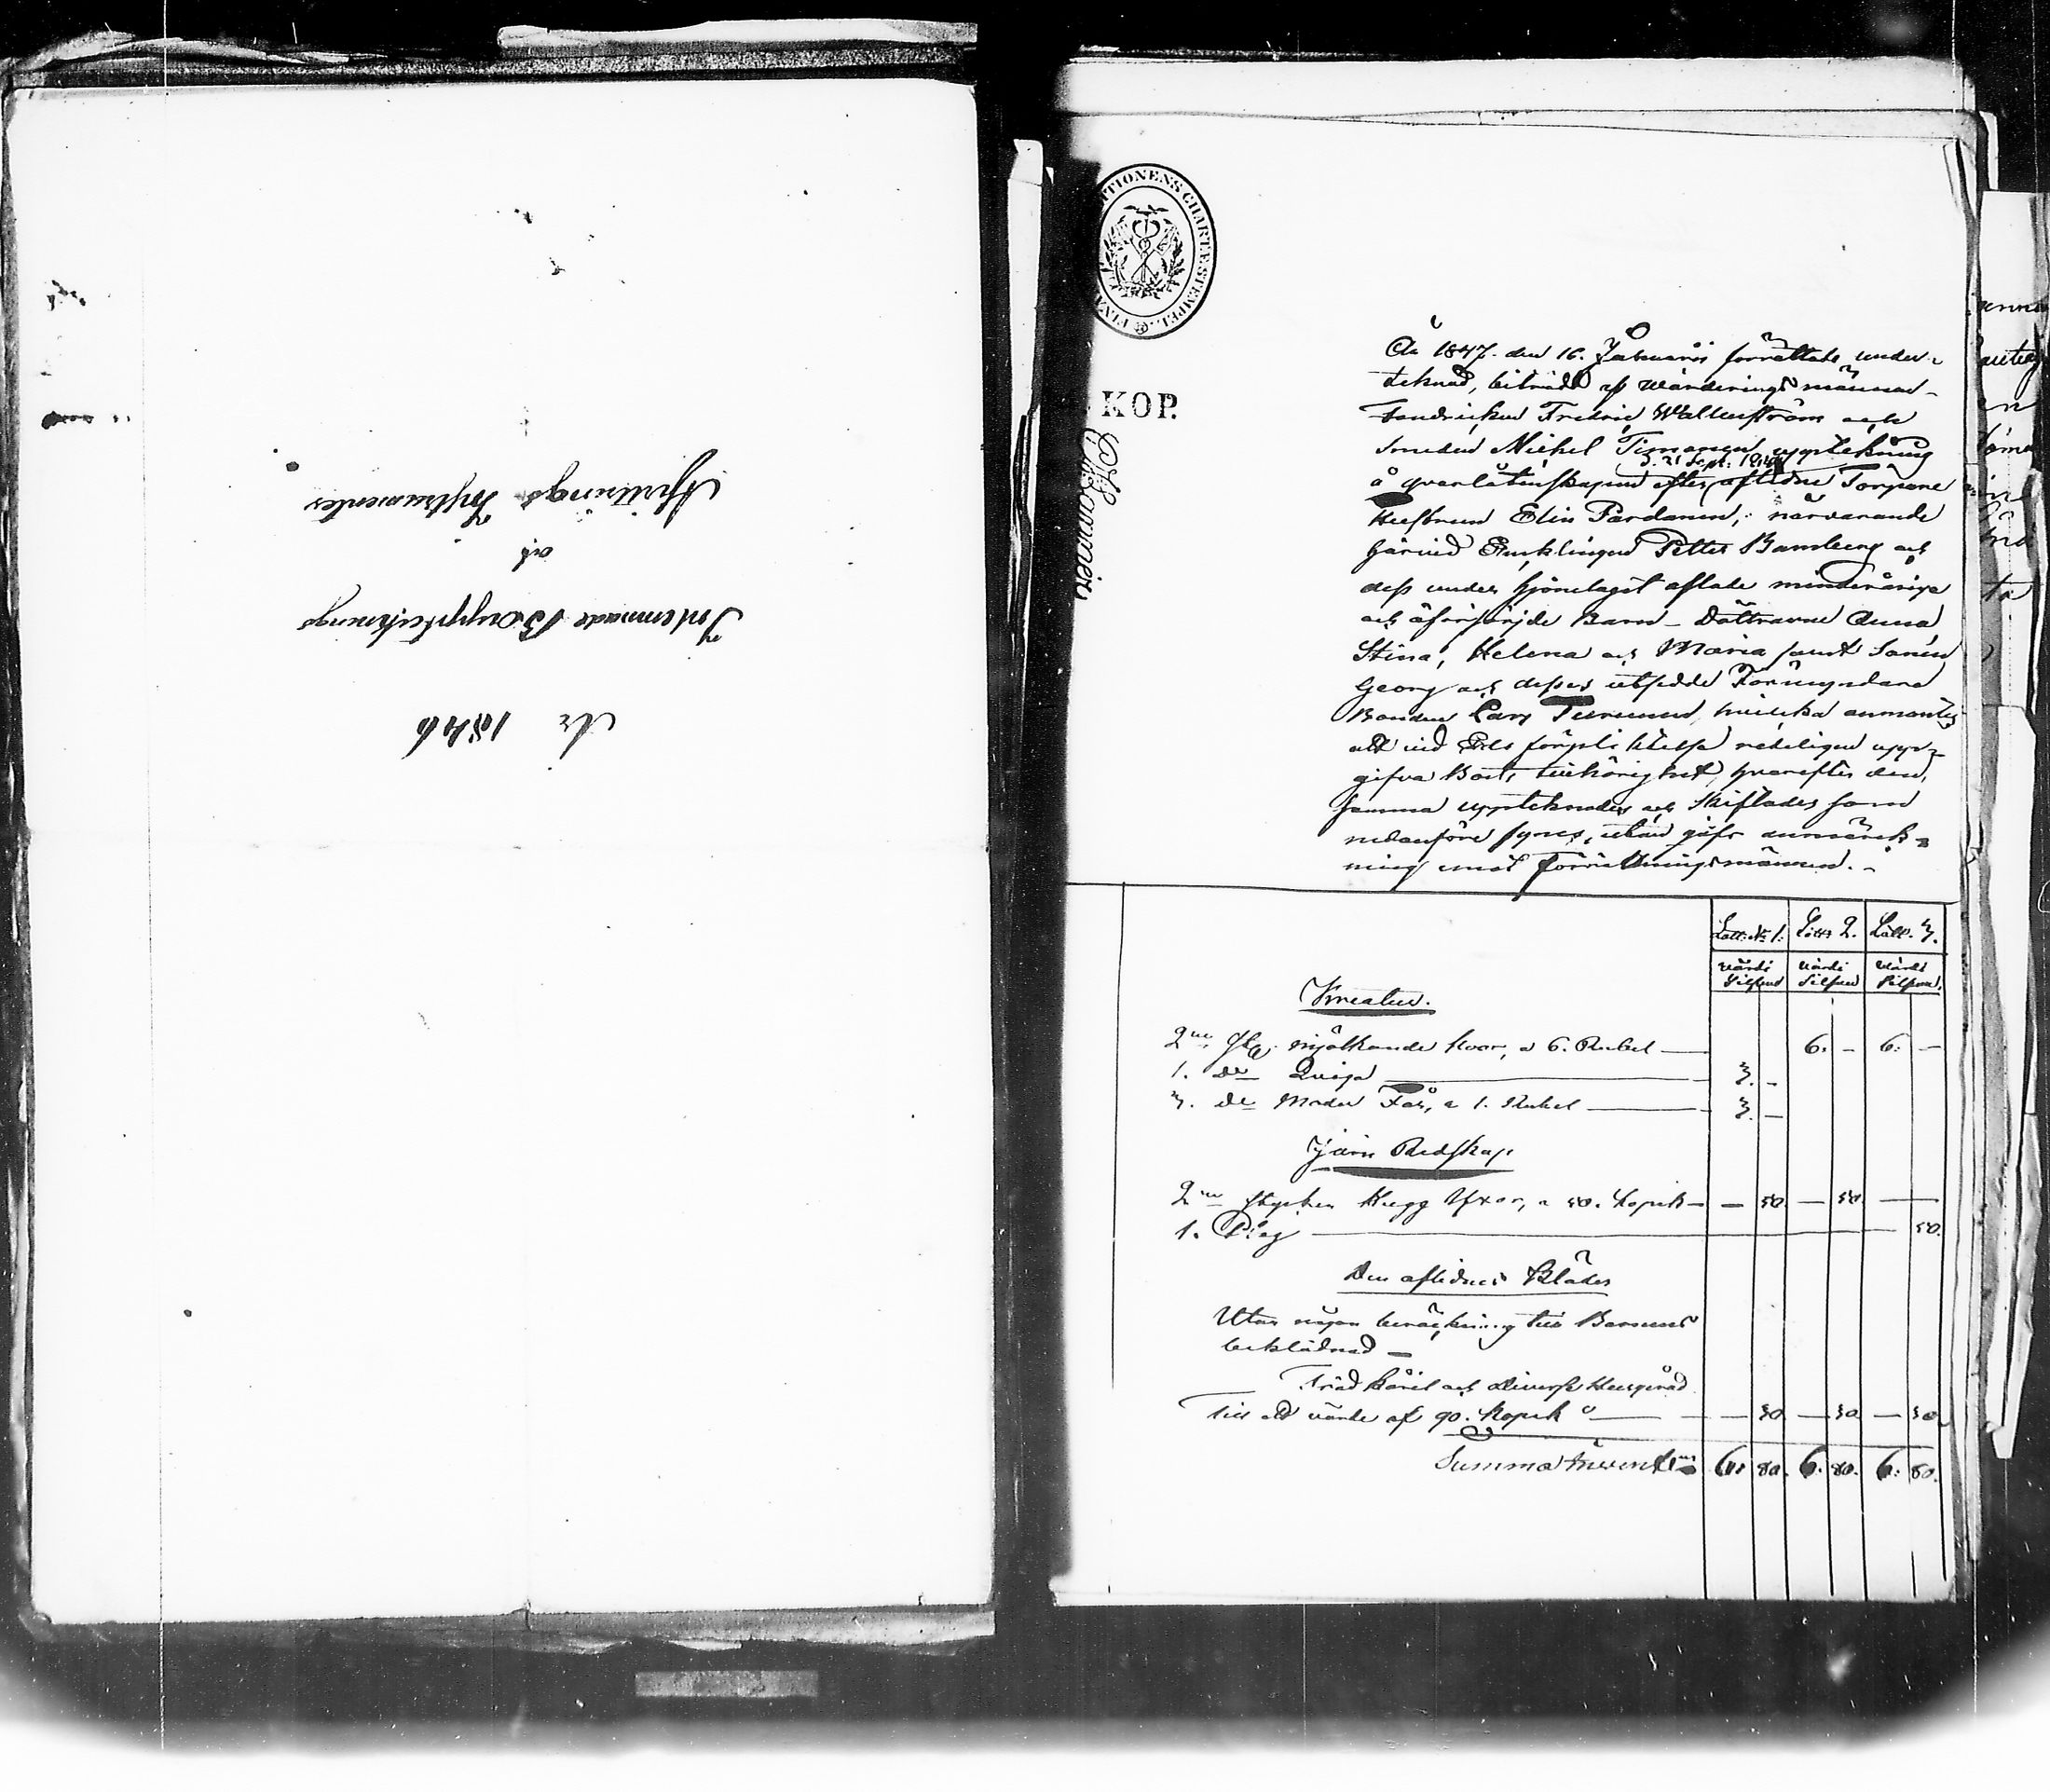 År 1846
Inlemnade Bouppteknings
och
Afvittrings Instrumenter
KOP.
År 1847. den 16. Januarii förrättade under-
teknad, biträdd af värderingsmännen
Fredric Wallenström och
Smeden Michel Timonen upptekning
d. 21 Sept. 
å qvarlåtenskapen efter aflidne Torpare
Hustrun Elin Pardanen, närvarande
härvid Enklingen Petter Bamberg och
dess under hjonelaget aflade minderåriga
och oförsörjde Barn - Döttrarne Anna
Stina, Helena och Maria samt Sonen
Georg och desses utsedde Förmyndare
Bonden Lars hvilka anmantes
att vid Eds förpliktelse redeligen upp-
gifva Boets tillhörighet, hvarefter den
samma upptekades och skiftades som
nedanföre synes, utan jäfs anmärk-
ning emot Förrättningsmännen. -
Lott. No 1. Lott 2. Lott. 3.
Värde Silfver Värde Silfver Värde Silfver.
Kreatur.
2ne st. mjölkande Kor, a 6. Rubel — 6. - 6. -
1. do Qviga — 3. -
3. do Moder Får, a 1. Rubel — 3. -
Järn Redskap
2ne stycken Hugg Yxor, a 50. Kopek — 50. — 50. —
1. Plog — 50.
Den aflidnes Kläder
Utan någon beräkning till Barnens
beklädnad —
Träd käril och diverse Husgeråd
till ett värde af 90. Kopek — 30 — 30 — 30
Summa 6. 80. 6. 80. 6. 80.